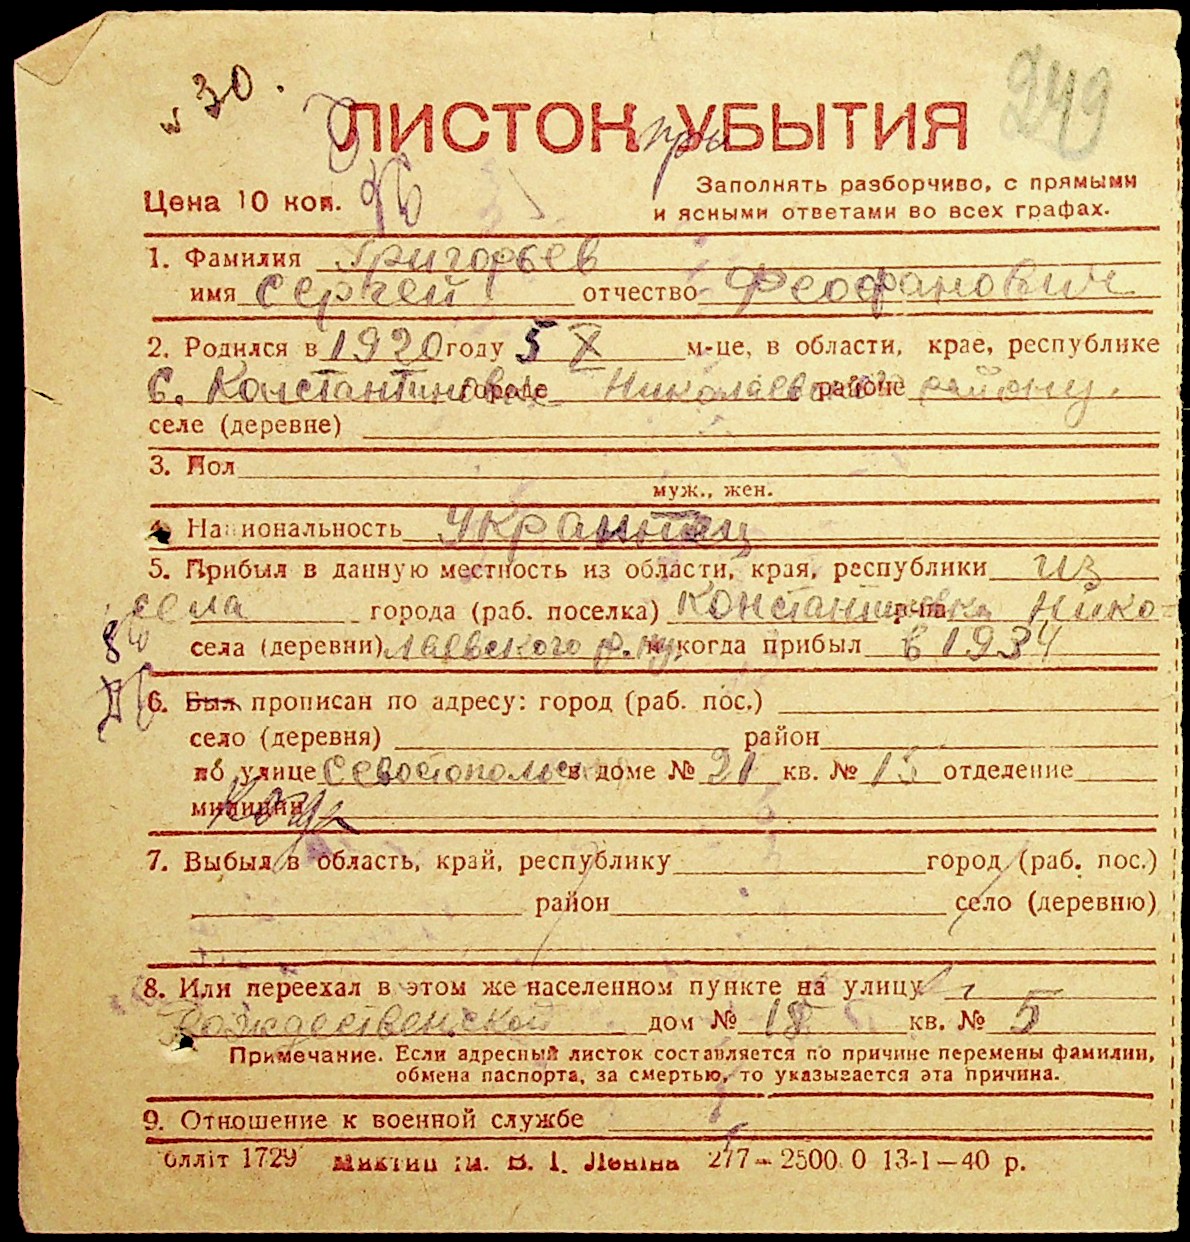 № 30.
249
ЛИСТОК УБЫТИЯ
при
Цена 10 коп.
Заполнять разборчиво, с прямыми
и ясными ответами во всех графах.
1. Фамилия Григорьев
имя Сергей отчество Феофанович
2. Родился в 1920 году 5 X м-це, в области, крае, республике
С. Константиновка городе Николаевского районе району.
селе (деревне)
3. Пол
муж., жен.
4. Национальность Украинец
5. Прибыл в данную местность из области, края, республики из
села города (раб. поселка) Константиновка р-на Нико=
села (деревни) лаевского р.ну. когда прибыл в 1934
6. Был прописан по адресу: город (раб. пос.)
село (деревня) район
по улице Севостопольс в доме № 21 кв. № 15 отделение
милиции
7. Выбыл в область, край, республику город (раб. пос.)
район село (деревню)
8. Или переехал в этом же населенном пункте на улицу
Рождественской дом № 18 кв. № 5
Примечание. Если адресный листок составляется по причине перемены фамилии,
обмена паспорта, за смертью, то указывается эта причина.
9. Отношение к военной службе
блліт 1729 В. І. Леніна 277—2500 0 13-І—40 р.